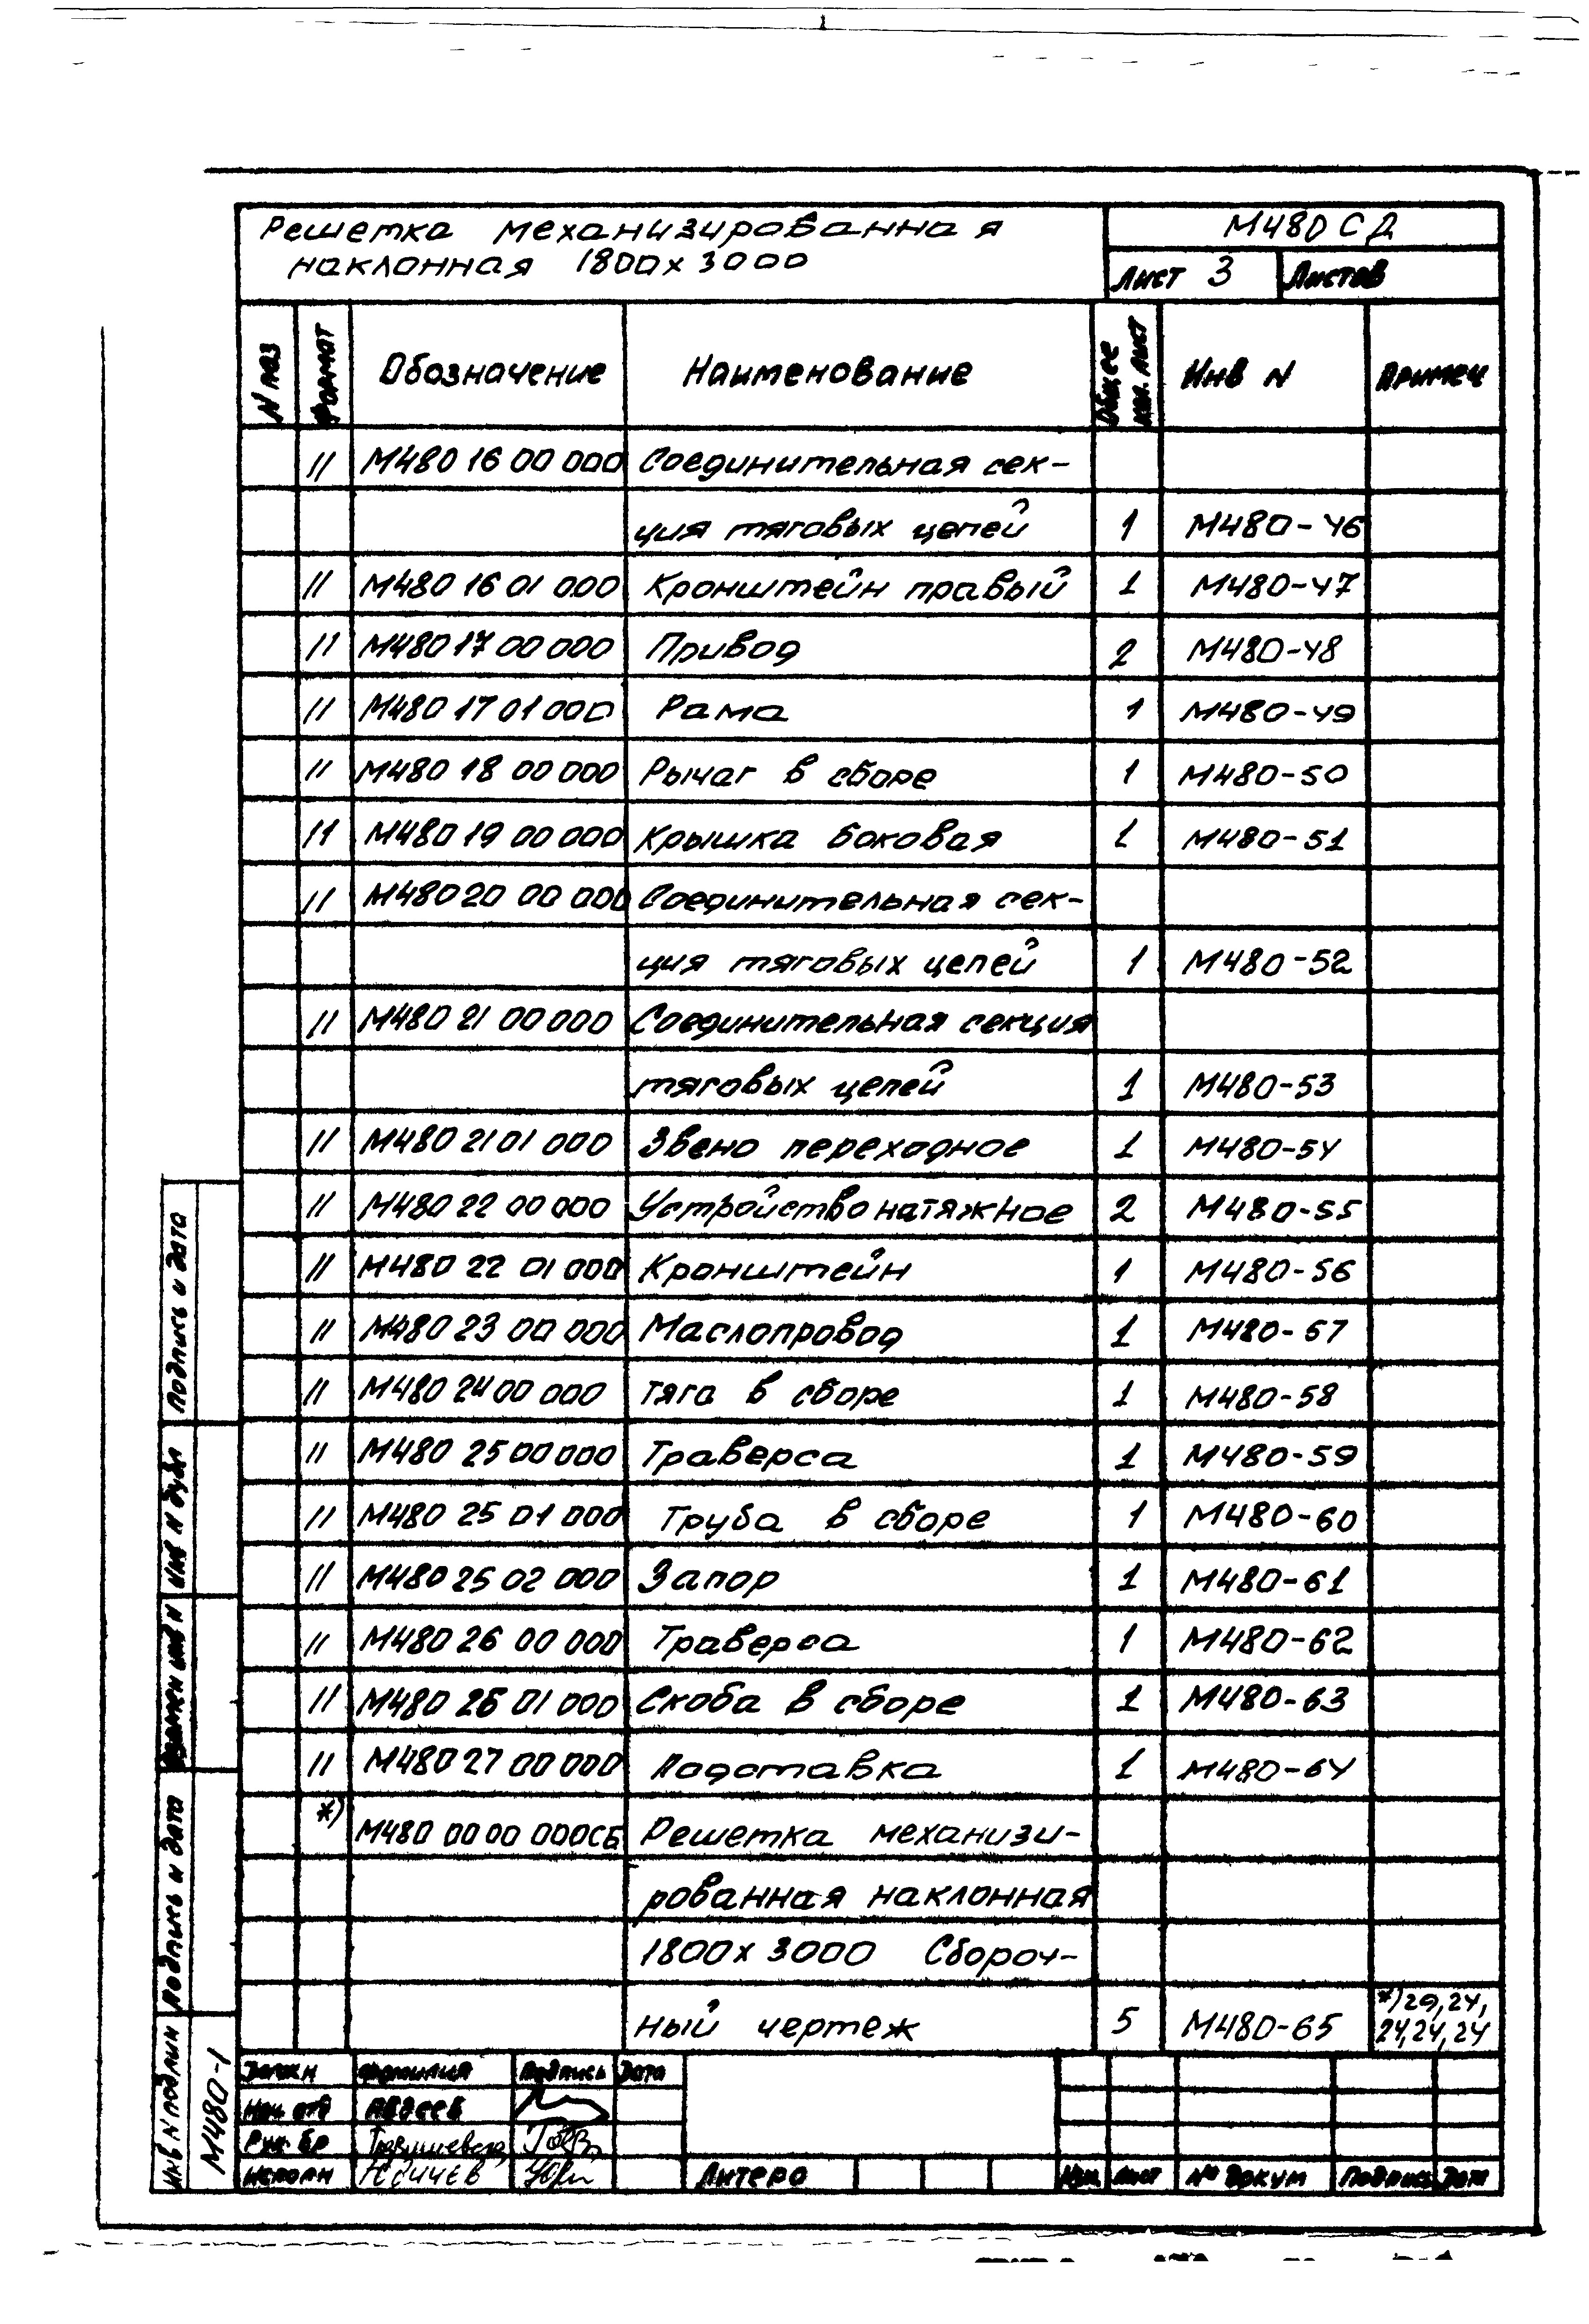 Решетка механизированная М480 СД
наклонная 1800х3000 Лист 3 Листов
N поз Формат Обозначение Наименование Общее кол. лист Инв N Примеч
11 М480 16 00 000 Соединительная сек-
ция тяговых цепей 1 М480-46
11 М480 16 01 000 Кронштейн правый 1 М480-47
11 М480 17 00 000 Привод 2 М480-48
11 М480 17 01 000 Рама 1 М480-49
11 М480 18 00 000 Рычаг в сборе 1 М480-50
11 М480 19 00 000 Крышка боковая 1 М480-51
11 М480 20 00 000 Соединительная сек-
ция тяговых цепей 1 М480-52
11 М480 21 00 000 Соединительная секция
тяговых цепей 1 М480-53
11 М480 21 01 000 Звено переходное 1 М480-54
11 М480 22 00 000 Устройство натяжное 2 М480-55
11 М480 22 01 000 Кронштейн 1 М480-56
11 М480 23 00 000 Маслопровод 1 М480-57
11 М480 24 00 000 Тяга в сборе 1 М480-58
11 М480 25 00 000 Траверса 1 М480-59
11 М480 25 01 000 Труба в сборе 1 М480-60
11 М480 25 02 000 Запор 1 М480-61
11 М480 26 00 000 Траверса 1 М480-62
11 М480 26 01 000 Скоба в сборе 1 М480-63
11 М480 27 00 000 Подставка 1 М480-64
*) М480 00 00 000СБ Решетка механизи-
рованная наклонная
1800х3000 Сбороч-
ный чертеж 5 М480-65 *)29,24,
24,24,24
Должн Фамилия Подпись Дата
Нач отд Авдеев
Рук. бр
Исполн
Литера Изм Лист № докум Подпись Дата
Подпись и дата
Инв N дубл
Взамен инв N
Подпись и дата
Инв N подлин М480-1